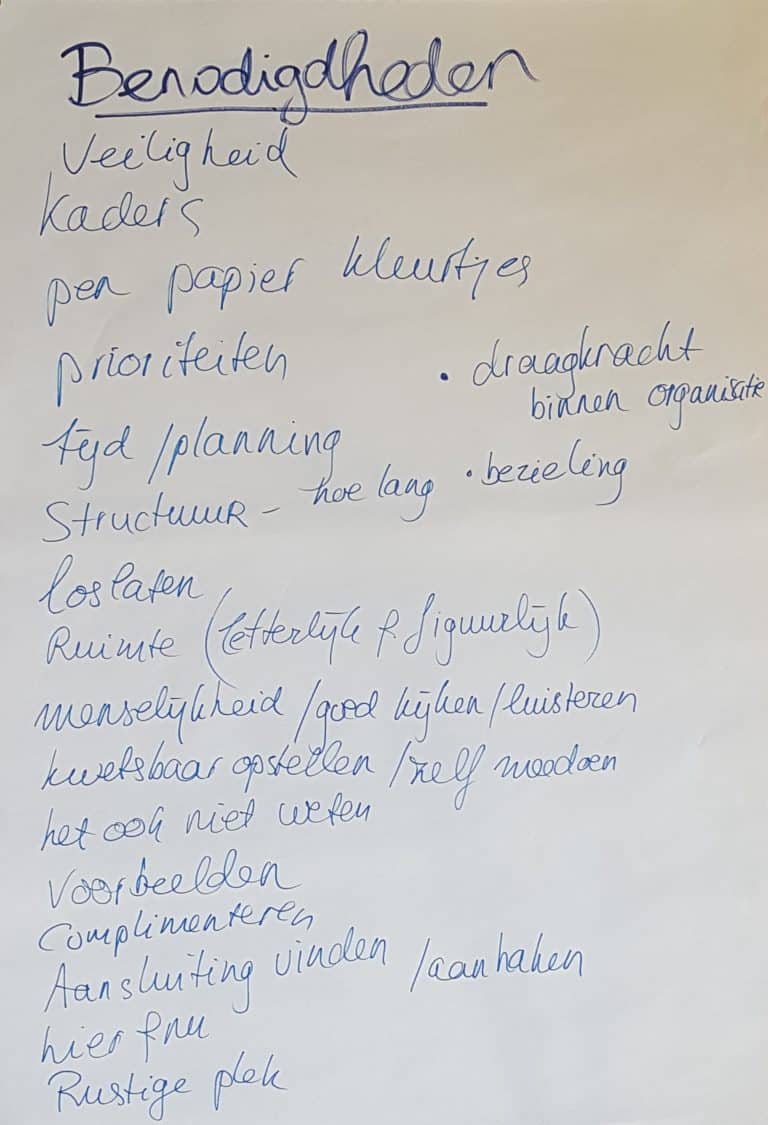 Benodigdheden
Veiligheid
Kaders
pen papier kleurtjes
prioriteiten
• draagkracht
binnen organisatie
tijd /planning
Structuur - hoe lang
• bezieling
loslaten
Ruimte (letterlijk & figuurlijk)
menselijkheid /goed kijken /luisteren
kwetsbaar opstellen /zelf meedoen
het ook niet weten
Voorbeelden
Complimenteren
Aansluiting vinden /aanhaken
hier & nu
Rustige plek